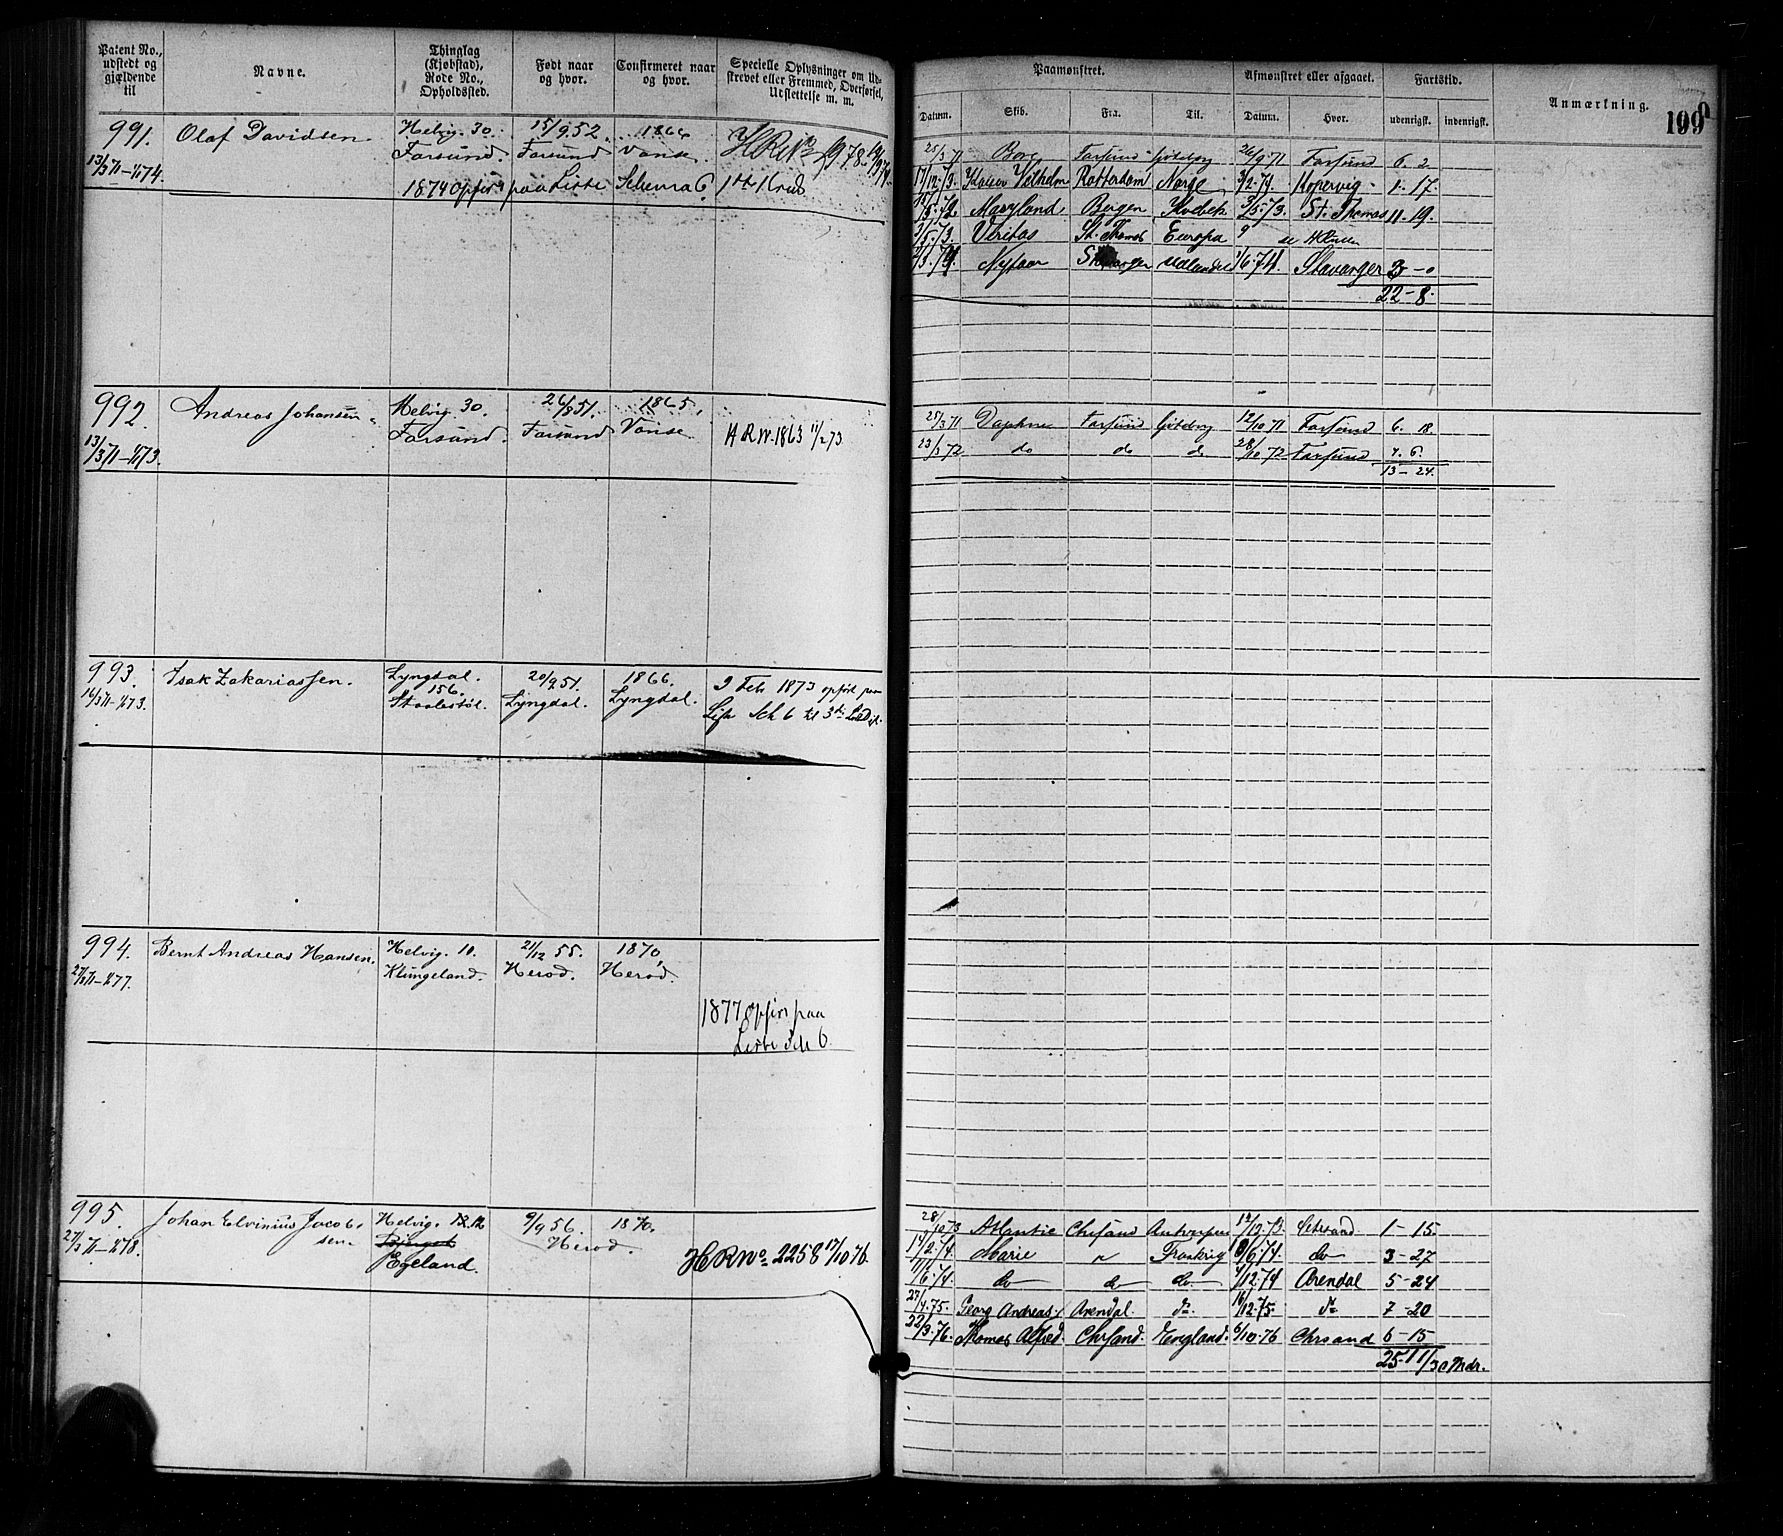 Patent No.,
udstedt og
gjældende
til
Navne.
Thinglag
(Kjøbstad),
Rode No.,
Opholdssted.
Født naar
og hvor.
Confirmeret naar
og hvor.
Specielle Oplysninger om Ud-
skrevet eller Fremmed, Overførsel,
Udslettelse m. m.
991.
13/3 71-1/1 74.
Olaf Davidsen
Helvig. 30.
Farsund.
15/9.52.
Farsund
1866
Vanse.
1874 opført paa Liste Schema 6
992.
13/3 71-1/1 73.
Andreas Johansen
Helvig 30.
Farsund.
26/8 51.
Farsund
1865.
Vanse
H R No 1863 11/2 73
993.
16/3 71-1/1 73.
Isak Zakariassen.
Lyngdal.
156.
Staalestöl.
20/9 51.
Lyngdal.
1866.
Lyngdal.
3 Feb 1873 opført paa
Liste Sch 6
994.
27/3 71-1/1 77.
Bernt Andreas Hansen.
Helvig. 10.
Klungeland.
21/12 55.
Herod.
1870,
Herod.
1877 opført paa
Liste Sch 6
995.
27/3 71-1/1 78.
Johan Elvinius Jacob-
sen.
Helvig. 12.
Egeland.
9/9 56.
Herod.
1870.
H R No. 2258 17/10 76.
Paamønstret.
Afmønstret eller afgaaet.
Fartstid.
Anmærkning.
199
Datum.
Skib.
Fra.
Til.
Datum.
Hvor.
udenrigsk.
indenrigsk.
25/3 71 Borg Farsund Göteborg 26/9 71 Farsund 6. 2
17/12.73. Vilhelm Rotterdam Norge 3/2.74. Kopervig 1. 17.
Maryland Bergen 3/5.73. St. Thomas 11. 19.
3/5.73. Veritas St. Thomas Europa
Nyjaar Stavanger Udlandet 1/6.74. Stavanger 3 - 0
22 - 8.
25/3 71 Daphne Farsund Göteborg 12/10 71 Farsund 6. 18.
23/3 72 do do do 28/10 72 Farsund 7. 6.
13 - 24.
28/10 73 Atlantic Chrsand Antwerpen 12/12.73. Chrsand 1 - 15.
14/2.74. Marie Frankrig 8/6.74. do 3 - 27
11/6.74. do do do 4/12.74 Arendal 5 - 24
27/4.75. Georg Andreas Arendal. do. 16/12.75 do 7 - 20
22/3.76. Thomas Alfred Chrsand. England. 6/10.76 Chrsand 6 - 15
25 11/30 Mdr.